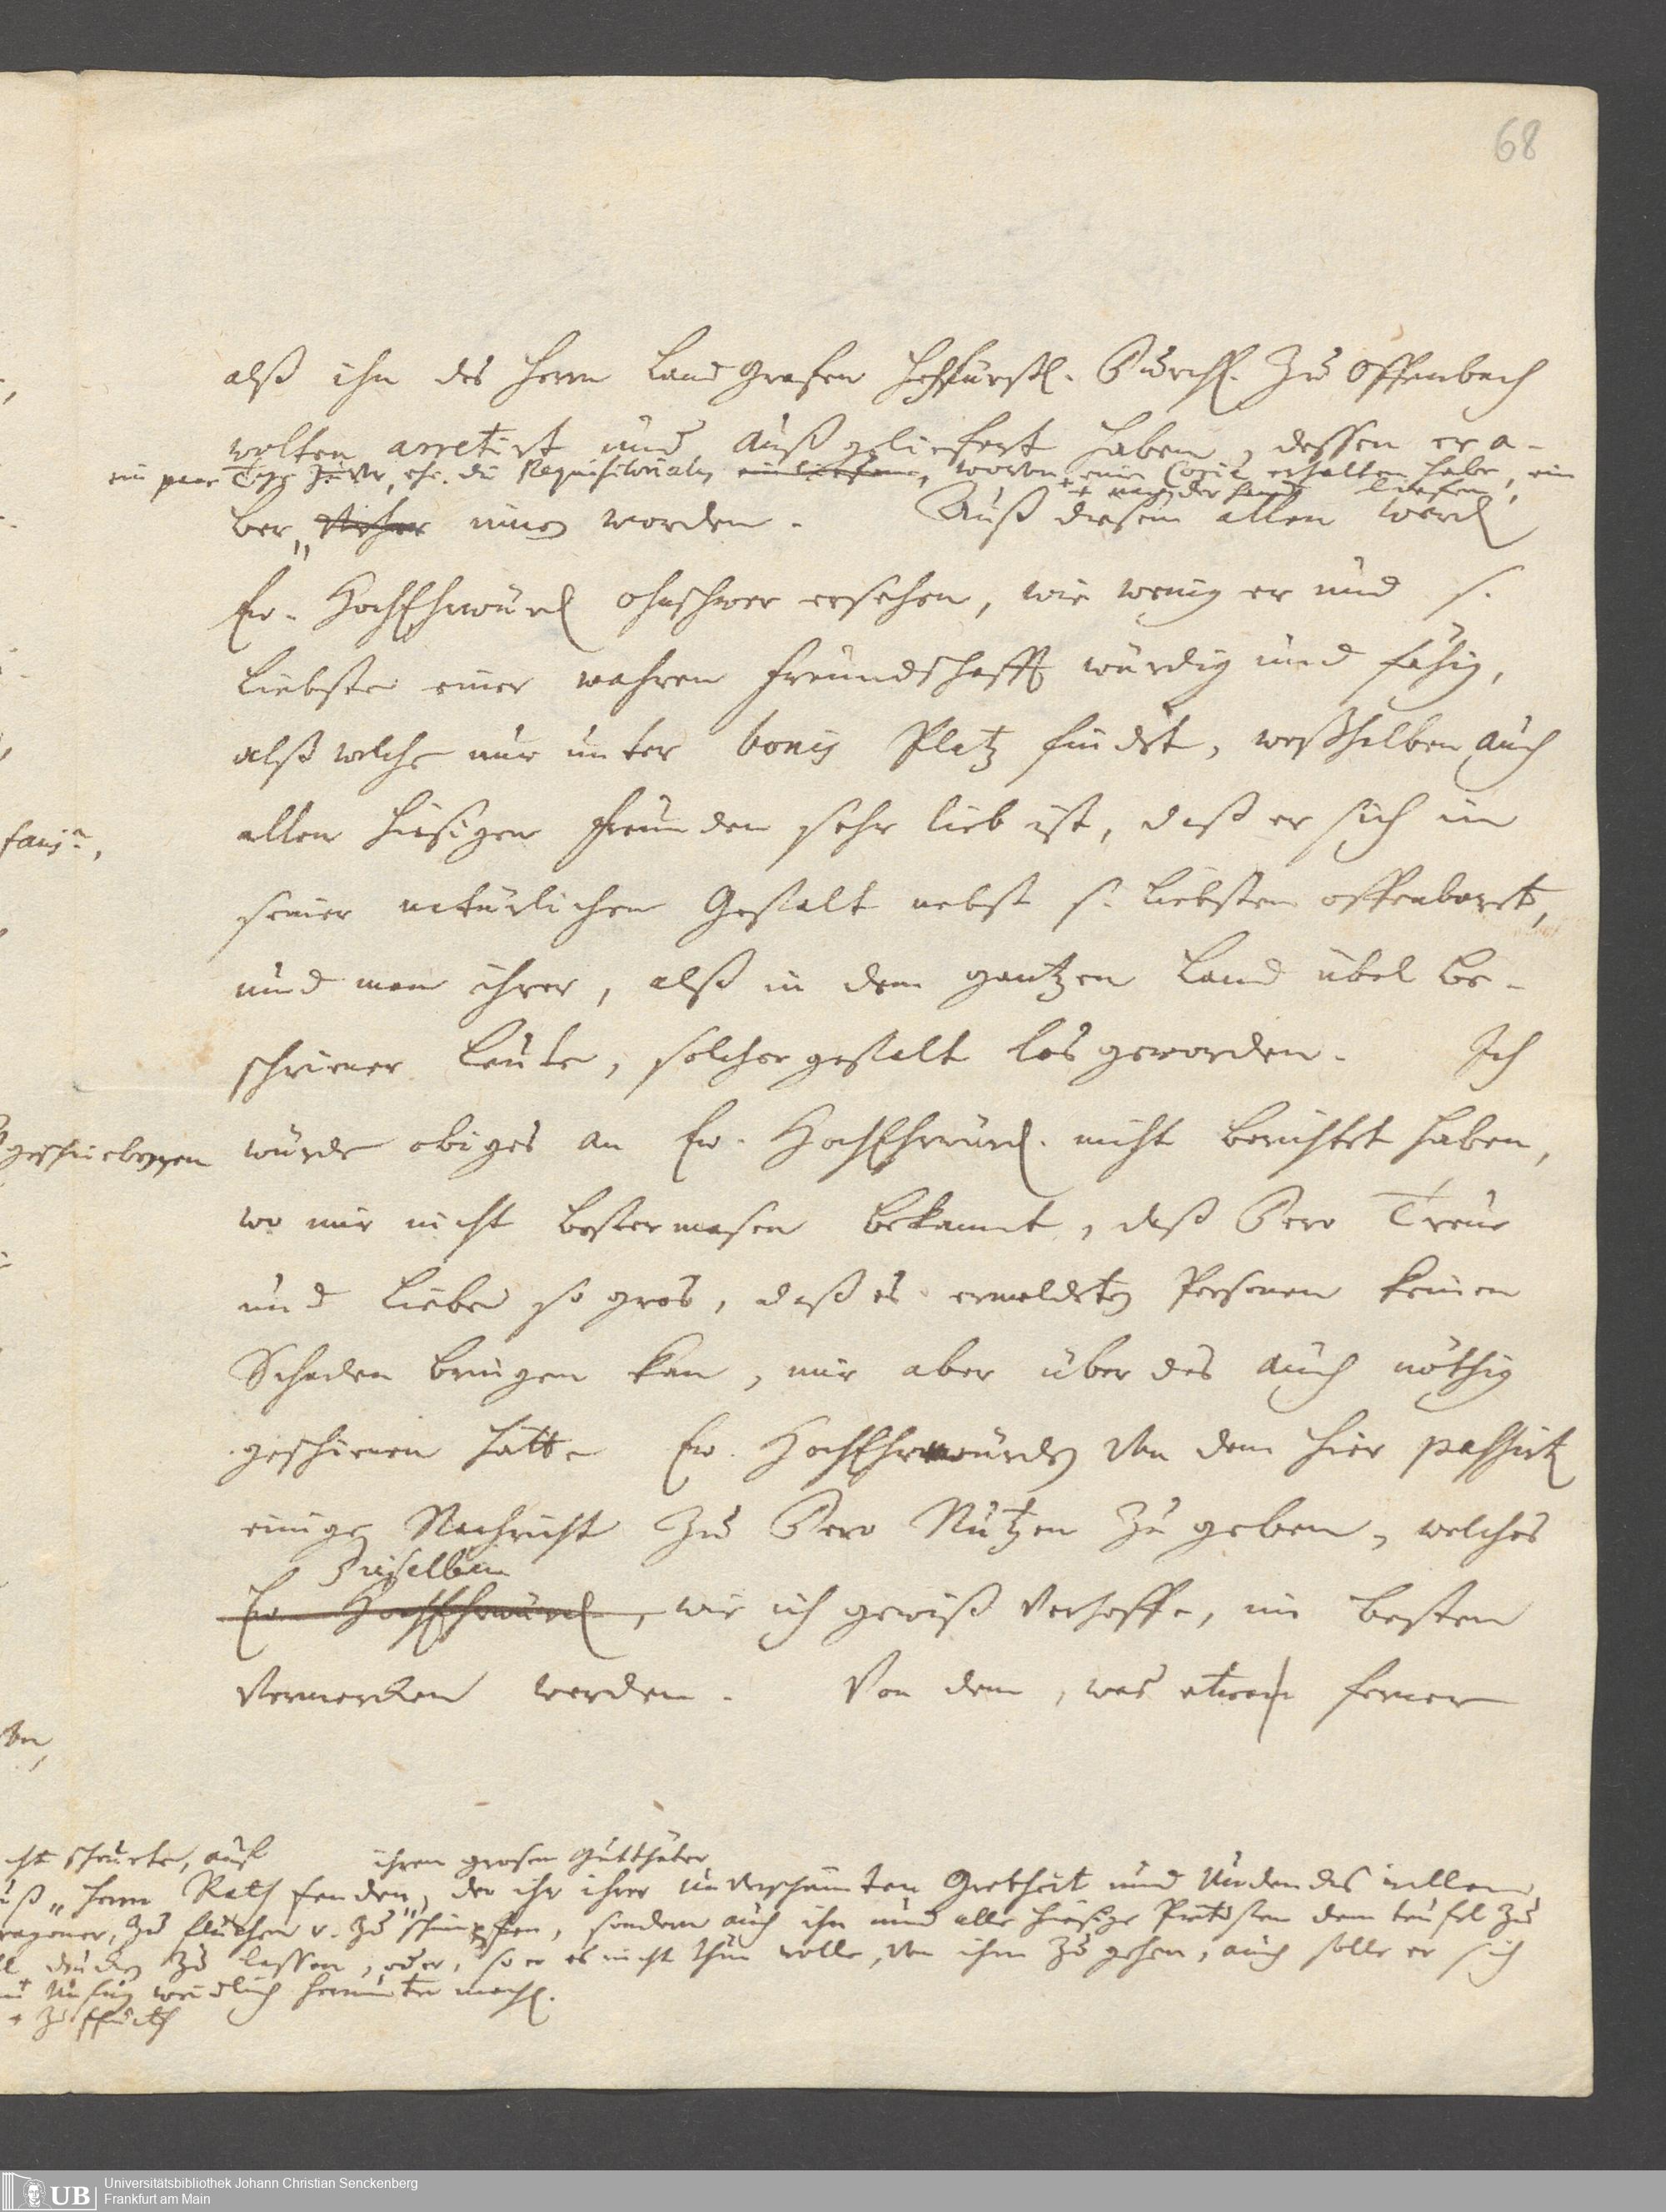 68
alß ihn des Herrn Land Grafen HochFürstl. Durchl. zu Offenbach
wolten arretirt und außgeliefert haben, dessen er a-
ein paar Tage zuvor, ehe die Requisitorialen einliefen, wovon eine Copia erhalten habe, ein
++ nach der Hand liefen,
ber innen worden. Auß diesem allen werd
Ew. HochEhrwürd ohnschwer ersehen, wie wenig er und s.
Liebste einer wahren Freundschafft würdig und fähig,
alß welche nur unter bonis Platz findet, weßhalben auch
allen hiesigen Freunden sehr lieb ist, daß er sich in
seiner natürlichen Gestalt nebst s. Liebsten offenbaret,
und man ihrer, alß in dem gantzen Land übel be-
schriener Leute, solchergestalt los geworden. Ich
würde obiges an Ew. HochEhrwürd. nicht berichtet haben,
wo mir nicht bestermasen bekannt, daß Dero Treue
und Liebe so gros, daß es ermeldeten Personen keinen
Schaden bringen kan, mir aber über des auch nöthig
geschienen hätte Ew. HochEhrwürden von dem hier passirten
einige Nachricht zu Dero Nutzen zu geben, welches
Dieselben
Ew. HochEhrwürd, wie ich gewiß verhoffe, im besten
vermercken werden. Von dem, was etwan ferner
scheuete, auf ihren grosen Gutthäter
Herrn Rath Fenden, der ihr ihrer unverschämten Grobheit und Undancks willen
zu fluchen u. zu schimpfen, sondern auch ihn und alle hiesige Pietisten dem teufel zu
zu lassen, oder, so er es nicht thun wolle, von ihm zu gehen, auch solle er sich
Unfug weidlich herunter mach.
Universitätsbibliothek Johann Christian Senckenberg
UB Frankfurt am Main